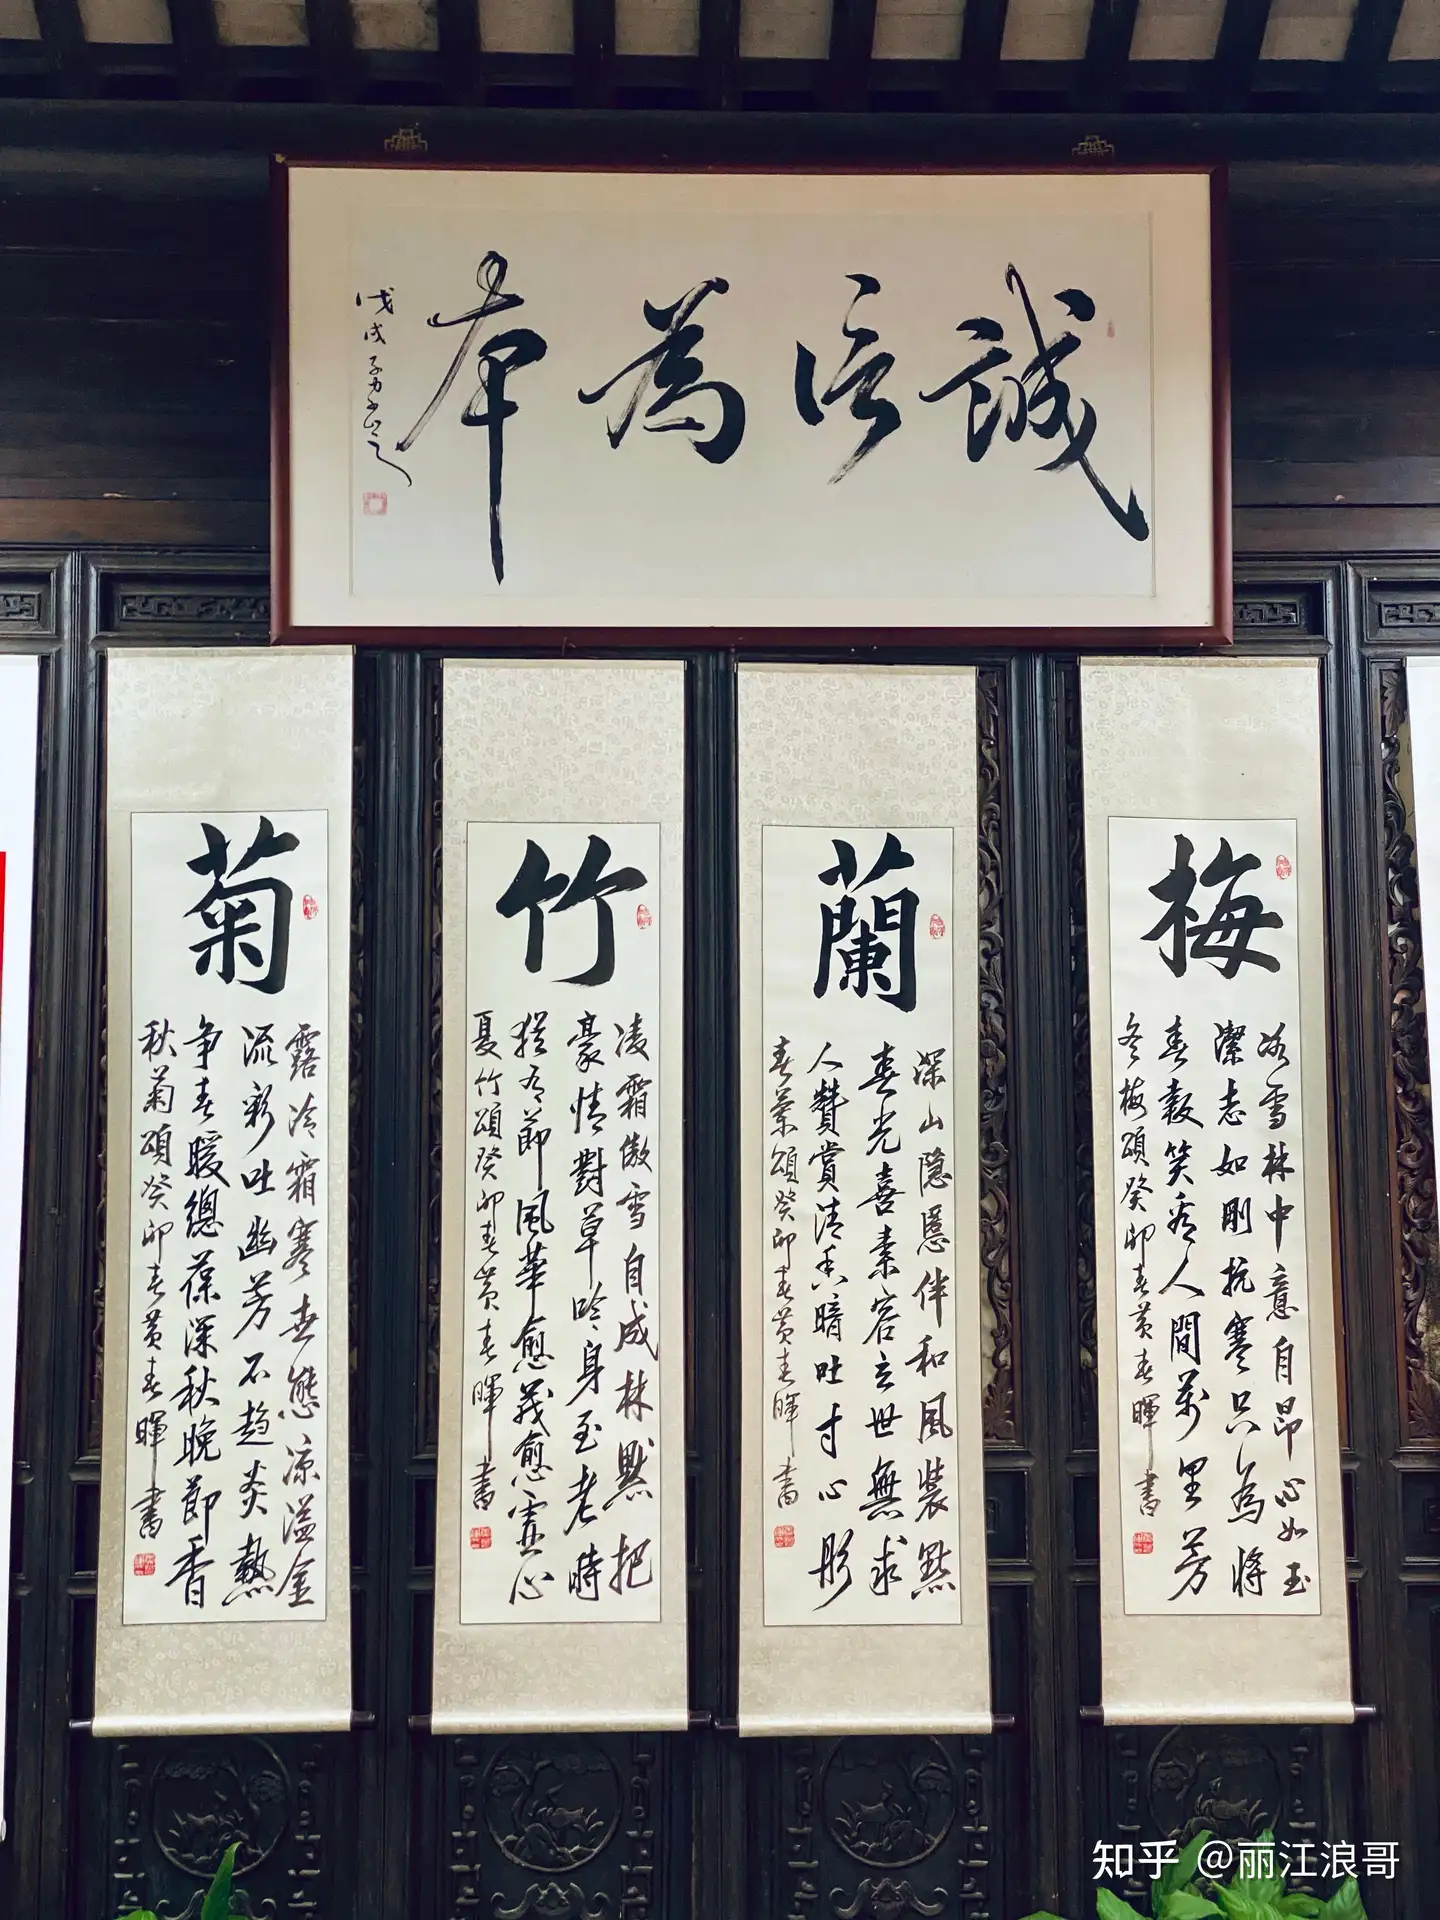 誠信為本
戊戌
梅
冰雪林中意自昂心如玉
潔志如剛抗寒只為將
春報笑看人間萬里芳
冬梅頌癸卯春黃春暉書
蘭
深山隱隱伴和風裝點
春光喜素容立世無求
人贊賞清香暗吐寸心彤
春蘭頌癸卯春黃春暉書
竹
凌霜傲雪自成林默把
豪情對草吟身至老時
猶有節風華愈茂愈虛心
夏竹頌癸卯春黃春暉書
菊
露冷霜寒世態凉溢金
流彩吐幽芳不趨炎熱
争春暖總葆深秋晚節香
秋菊頌癸卯春黃春暉書
知乎 @丽江浪哥